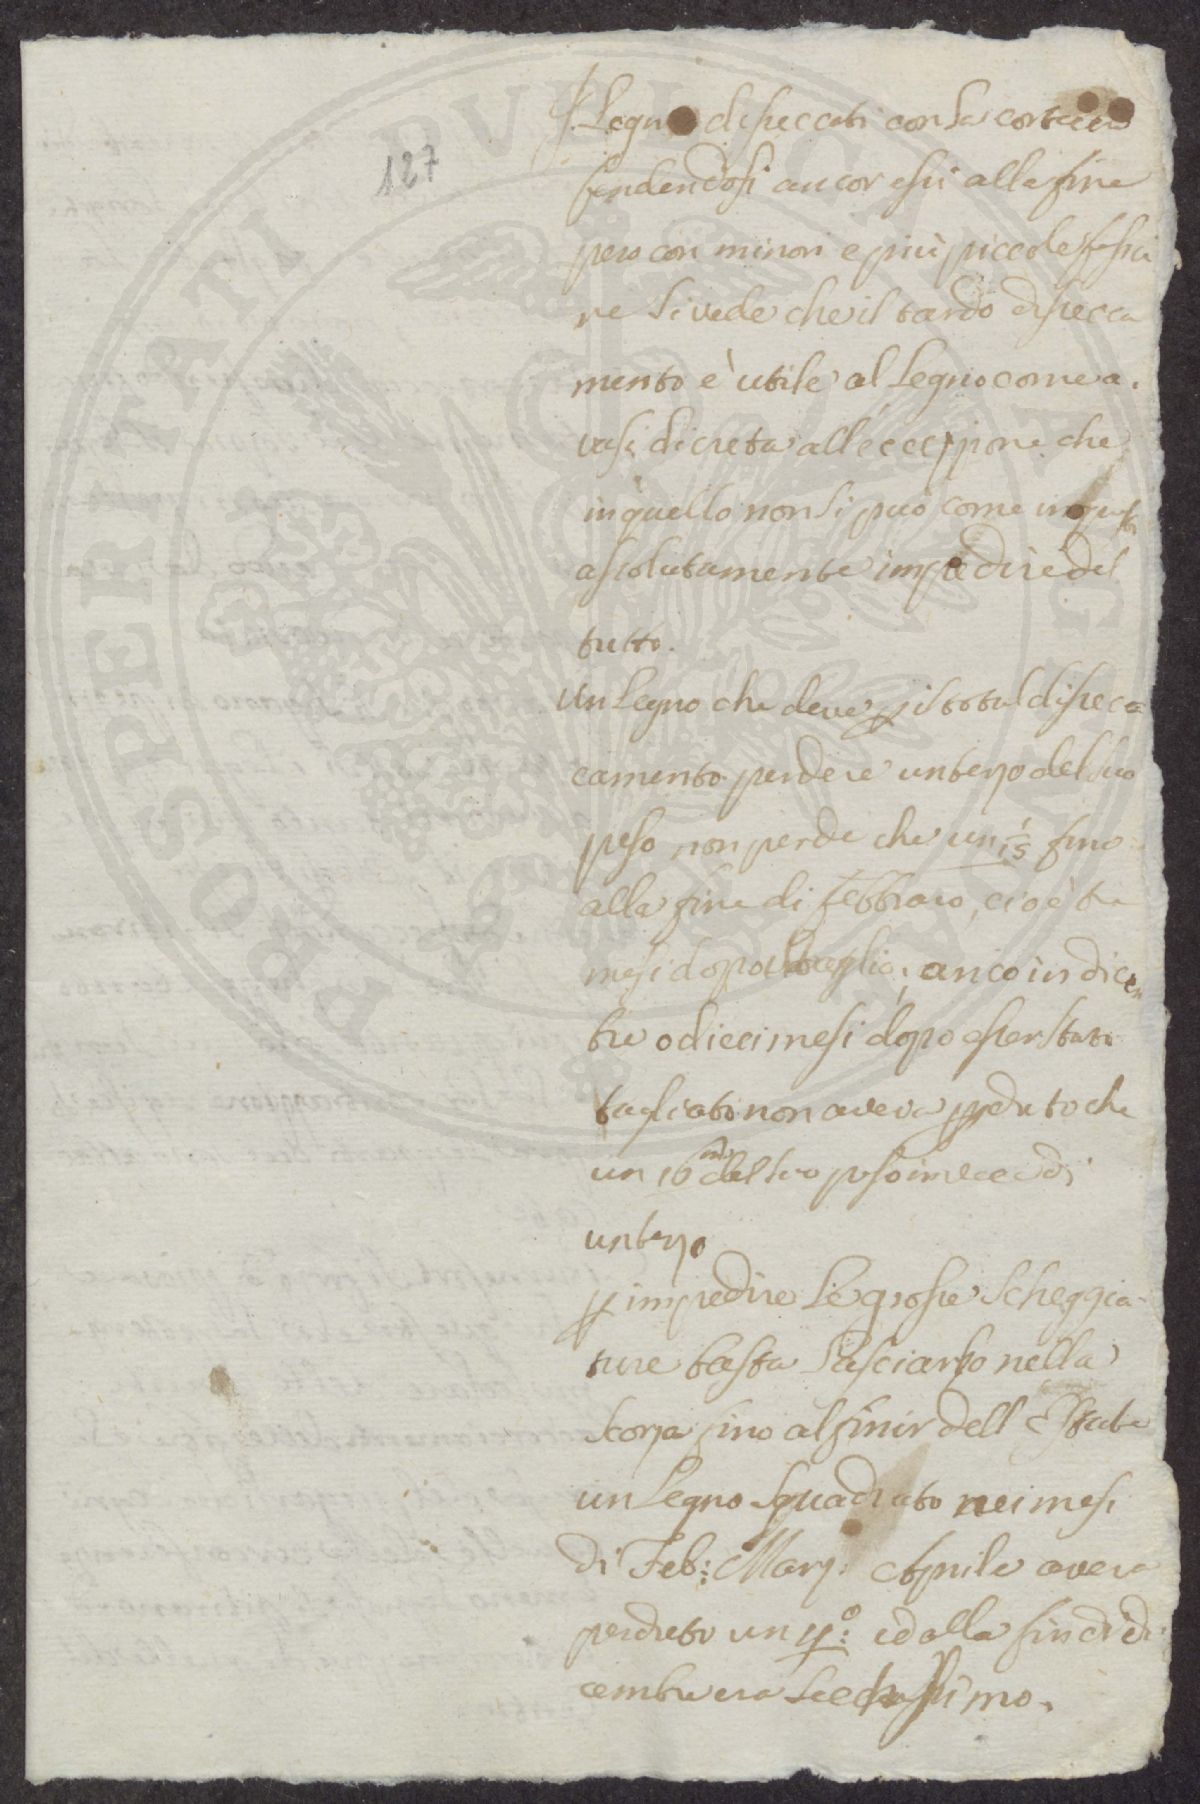 127
I Legni diseccati con la corteccia
fendendosi ancor essi alla fine
pero con minori e più piccole fessu
re si vede che il tardo disecca
mento è utile al Legno come a.
vasi di creta all'eccezzione che
in quello non si può come in questi
assolutamente impedire del
tutto.
Un Legno che deve p il total diseca
camento perdere un terzo del suo
peso non perde che un 1/15 fino
alla fine di febbraro, cioè tre
mesi dopo il taglio, anco in dicem
bre o dieci mesi dopo esser stato
tagliato non aveva pperduto che
un 16mo del suo peso invece di
un terzo
p impedire le grosse scheggia-
ture basta lasciarlo nella
scorza fino al finir dell Estate
un Legno squadrato nei mesi
di Feb: Marz. Aprile avera
perduto un 4o: ed alla fin di de
cembre era secchissimo.
PROSPERITATI PVBLICAE